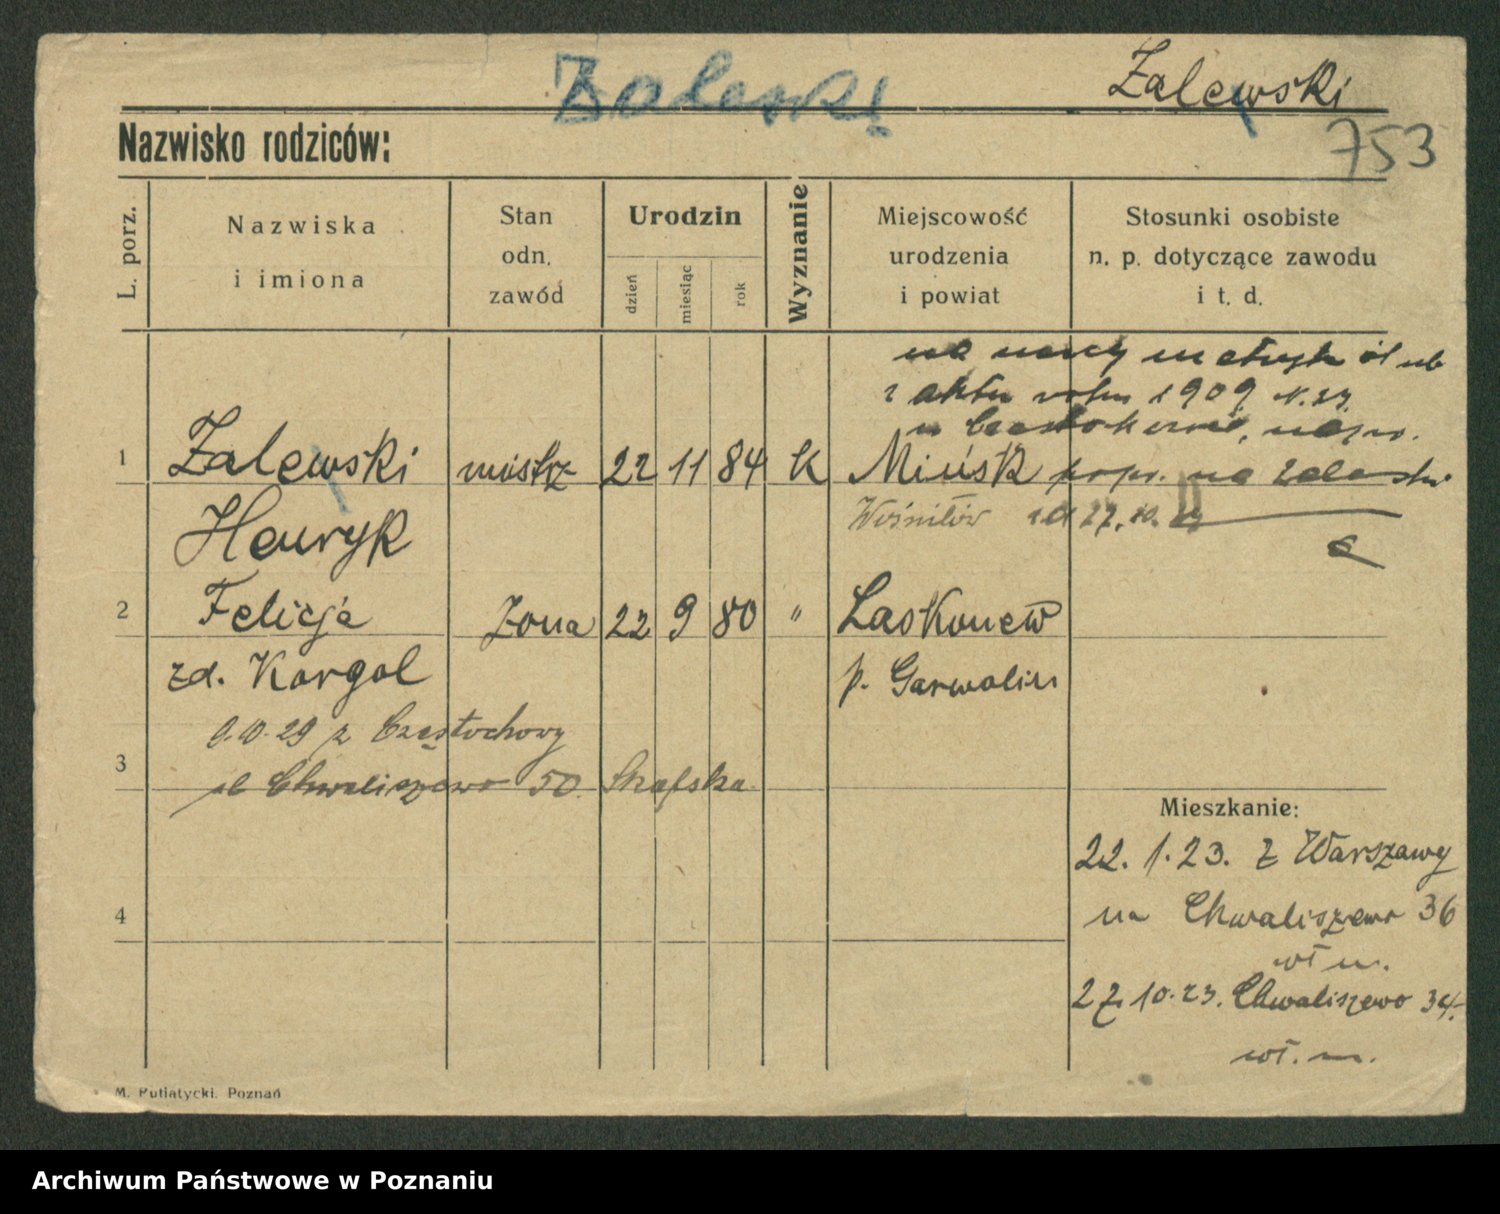 Zaleski
Zalewski
Nazwisko rodziców:
753
L. porz.
Nazwiska
i imiona
Stan
odn.
zawód
Urodzin
dzień
miesiąc
rok
Wyznanie
Miejscowość
urodzenia
i powiat
Stosunki osobiste
n. p. dotyczące zawodu
i t. d.
na mocy metryki ślub
z aktu 1909 N.
1 Zalewski mistrz 22 11 84 K Mińsk popr. na Zaleski
Henryk
27. 10.
2 Felicja Żona 22 9 80 " Laskonew
zd. Kargol p. Garwolin
9.10.29 z Częstochowy
3 ul Chwaliszewo 50.
Mieszkanie:
22. 1. 23. z Warszawy
4 na Chwaliszewo 36
wł m.
27. 10. 23. Chwaliszewo 34.
wł. m.
M. Putiatycki. Poznań
Archiwum Państwowe w Poznaniu